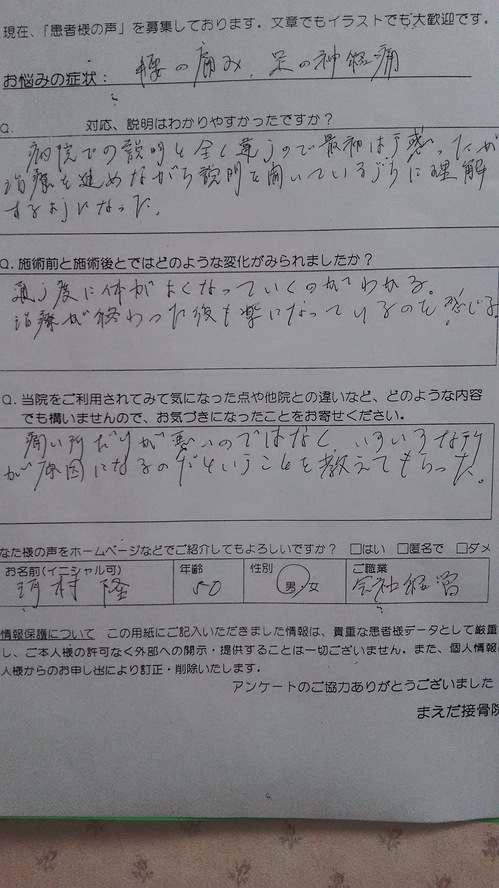 現在、「患者様の声」を募集しております。文章でもイラストでも大歓迎です。
お悩みの症状： 腰の痛み、足の神経痛
Q. 対応、説明はわかりやすかったですか？
病院での説明と全く違うので最初は戸惑ったが
治療を進めながら説明を聞いているうちに理解
するようになった。
Q. 施術前と施術後とではどのような変化がみられましたか？
通う度に体がよくなっていくのがわかる。
治療が終わった後も楽になっているのを感じる
Q. 当院をご利用されてみて気になった点や他院との違いなど、どのような内容
でも構いませんので、お気づきになったことをお寄せください。
痛い所だけが悪いのではなく、いろいろな所
が原因になるのだということを教えてもらった。
なた様の声をホームページなどでご紹介してもよろしいですか？ □はい □匿名で □ダメ
お名前(イニシャル可) 年齢 性別 ご職業
村 隆 50 男・女 会社経営
情報保護について この用紙にご記入いただきました情報は、貴重な患者様データとして厳重
し、ご本人様の許可なく外部への開示・提供することは一切ございません。また、個人情報
人様からのお申し出により訂正・削除いたします。
アンケートのご協力ありがとうございました
まえだ接骨院